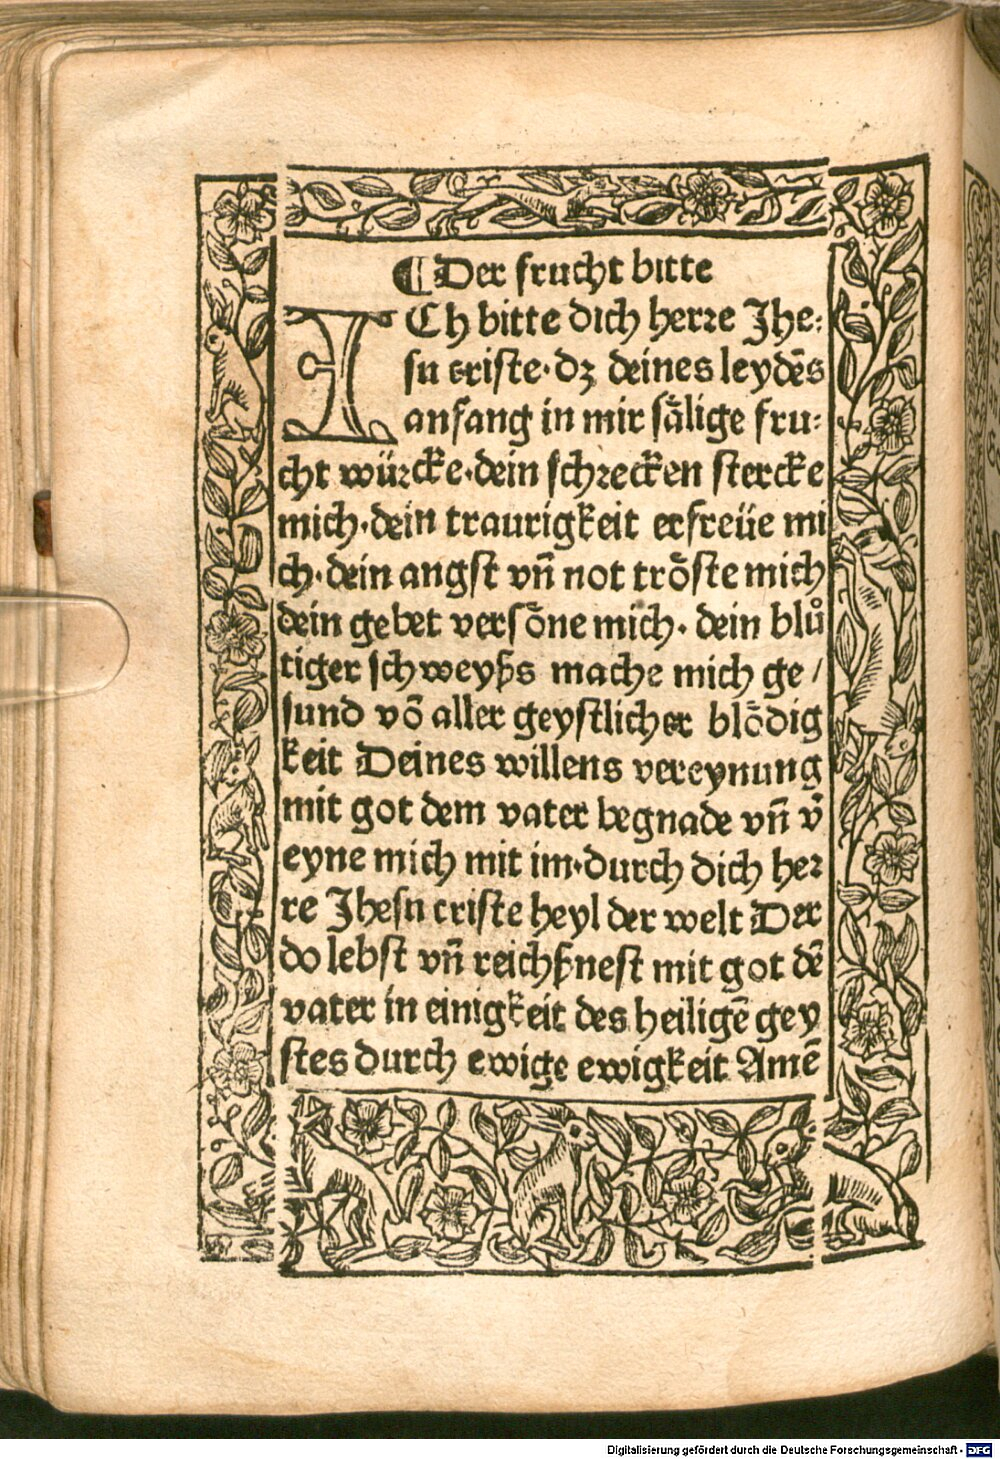 ¶ Der frucht bitte
ICh bitte dich herꝛe Jhe⸗
su criste·dz deines leydēs
anfang in mir sålige fru⸗
cht würcke·dein schꝛecken stercke
mich·dein traurigkeit erfreüe mi
ch·dein angst vn̄ not trőste mich
dein gebet versőne mich· dein blů
tiger schweyßs mache mich ge/
sund vō aller geystlicher blődig
keit Deines willens vereynung
mit got dem vater begnade vn̄ v̄
eyne mich mit im·durch dich heꝛ
re Jhesu criste heyl der welt Der
do lebst vn̄ reichßnest mit got dē
vater in einigkeit des heiligē gey
stes durch ewige ewigkeit Amē
Digitalisierung gefördert durch die Deutsche Forschungsgemeinschaft - DFG